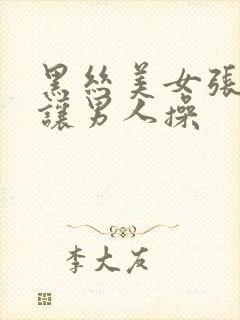 黑丝美女張
讓男人操
李大友